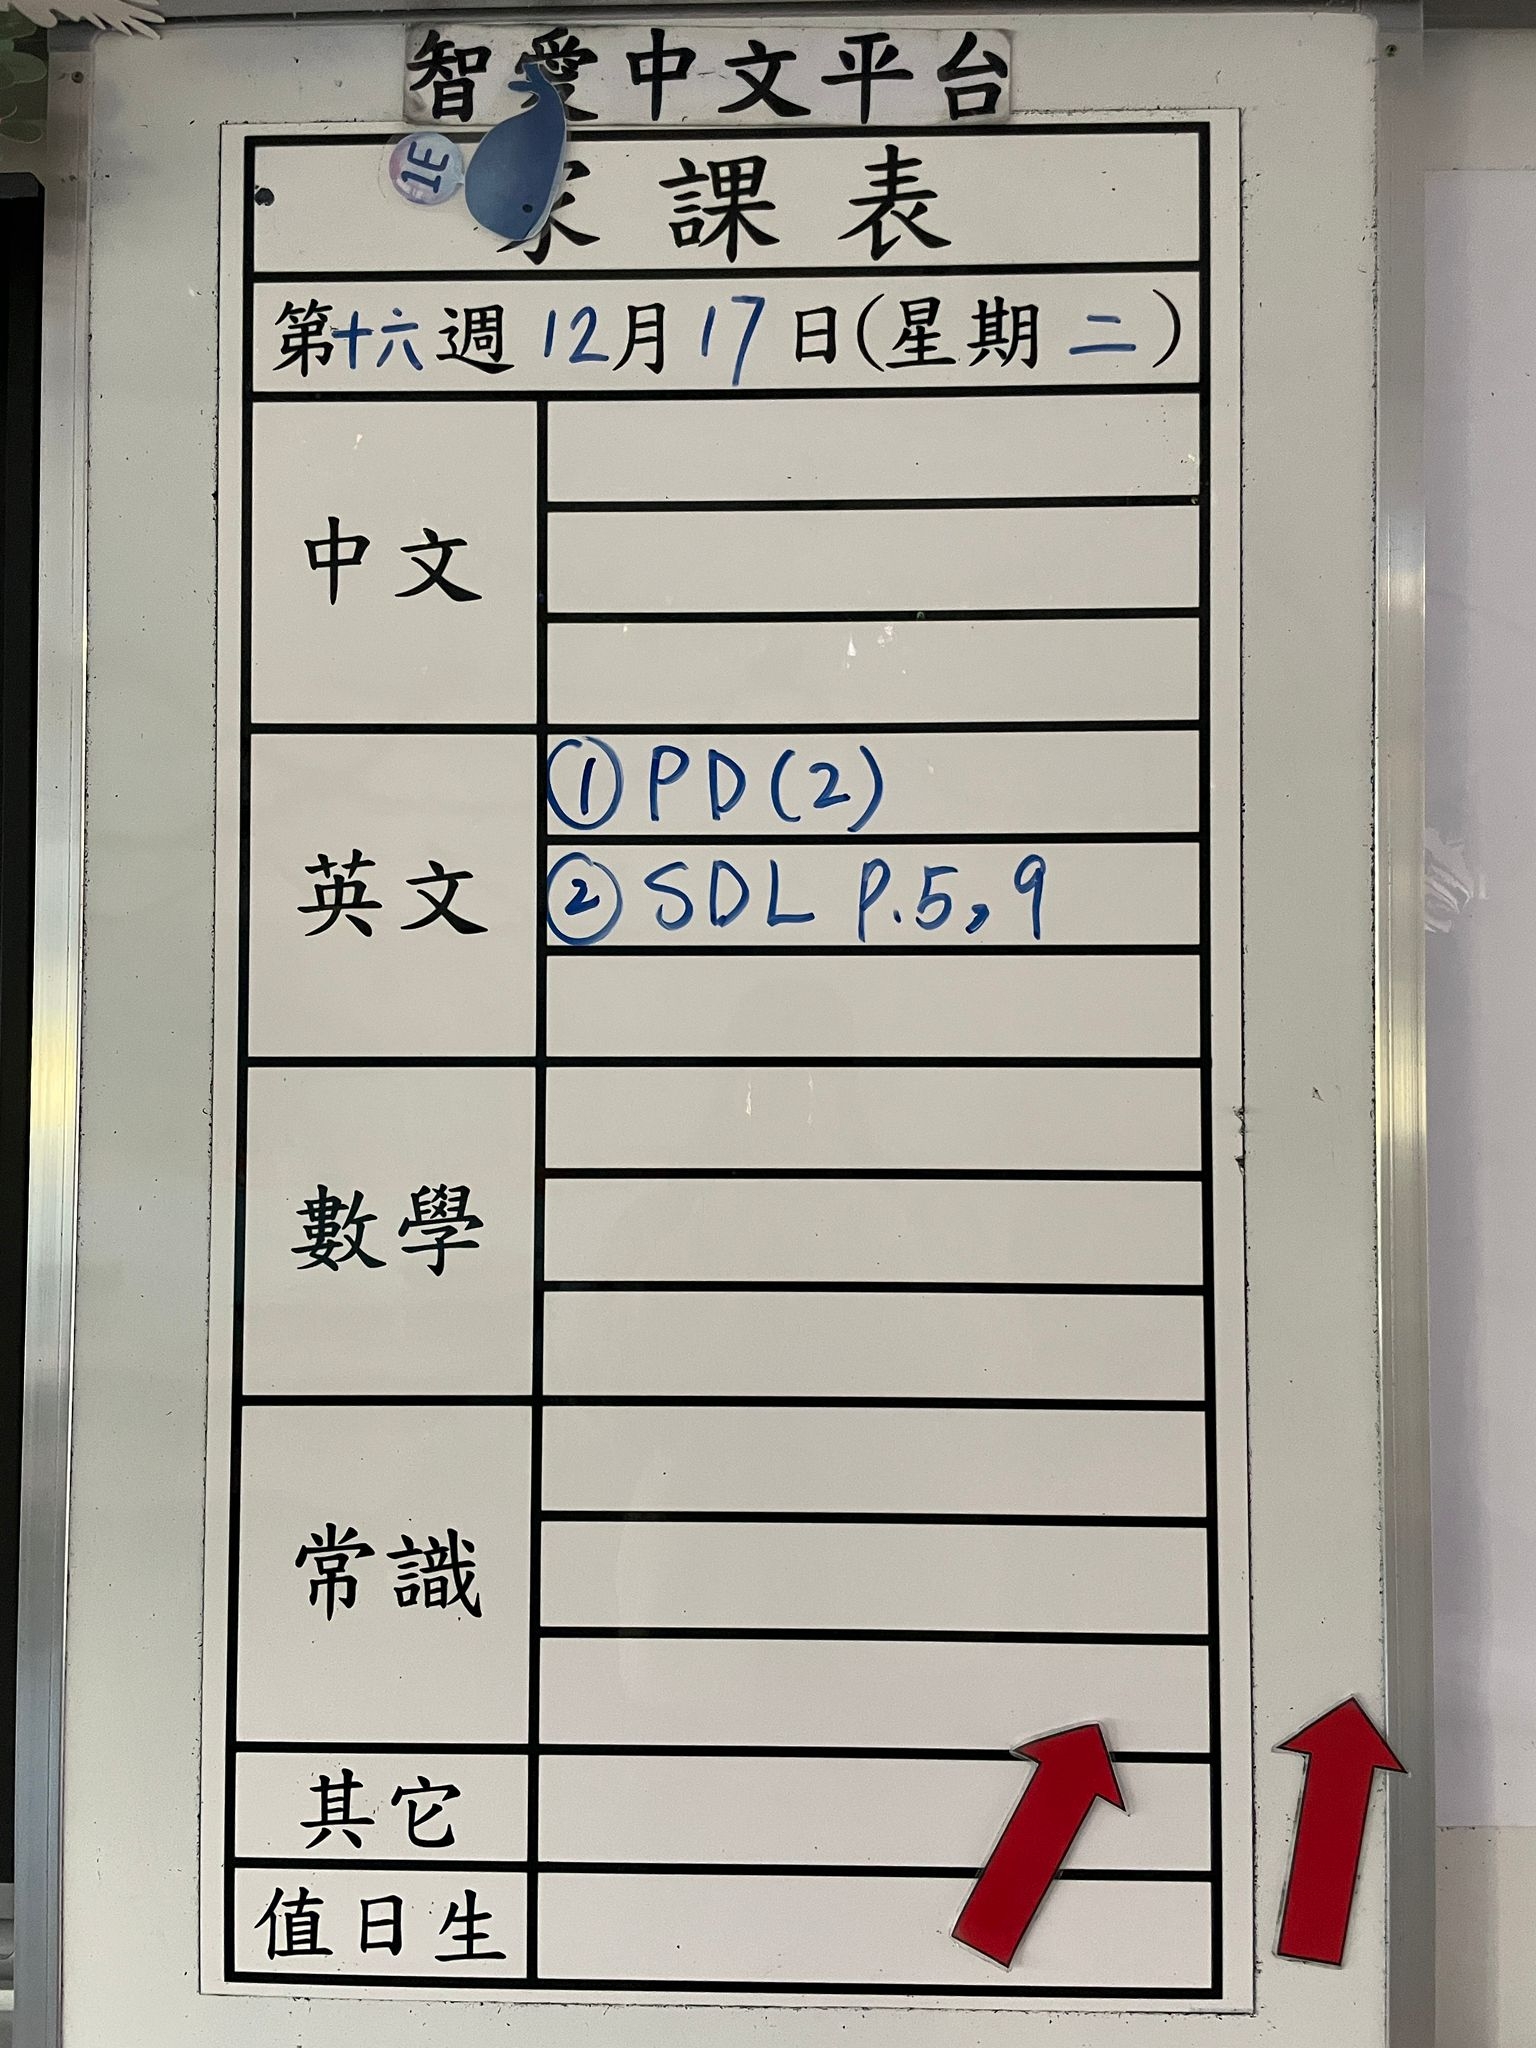 智愛中文平台
1E
家課表
第十六週 12月 17日(星期二)
中文
英文
① PD (2)
② SDL P.5, 9
數學
常識
其它
值日生